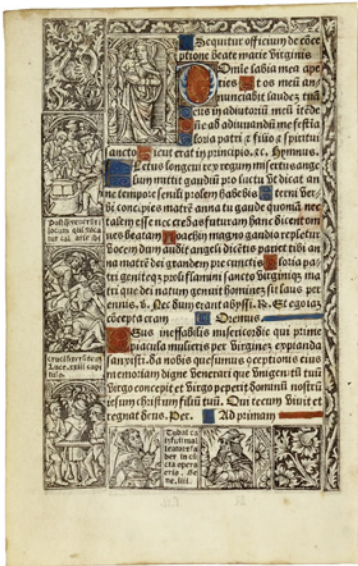 Sequitur officiũ de cõce
ptione beate marie virginis
Domĩe labia mea ape
ries Et os meũ an-
nunciabit laudẽ tuã
Deus in adiutoriũ meũ itẽde
Dñe ad adiuuandũ me festia
Gloria patri & filio & spiritui
sancto Sicut erat in principio. &c. Hymnus.
Letus longeui rex regum misertus ange
lum mittit gaudiũ pro luctu vt dicat an
ne tempore senili prolem habebis Eterni ver
bi concipies matrẽ anna tu gaude quoniã nec
talem esse nec credas futuram hanc dicent om
nes beatam Ioachim magno gaudio repletur
vocem dum audit angeli dicẽtis pariet tibi an
na matrẽ dei grandem pre cunctis Gloria pa
tri genitoqz proli flamini sancto virginiqz ma
tri que dei natum genuit homĩez sit laus per
ennis. v. Nec dum erant abyssi. R. Et ego iaz
cõcepta eram Oremus.
Deus ineffabilis misericordie qui prime
piacula mulieris per virginez expianda
sanxisti. da nobis quesumus cõceptionis eius
memoriam digne venerari que vnigenitũ tuũ
virgo concepit et virgo peperit dominũ nostrũ
iesum christum filiũ tuũ. Qui tecum viuit et
regnat deus. Per. Ad primam
Postq̃ venerũt ĩ
locum qui voca
tur cal arie ibi
crucifixerũt eum
Luce. xxiii. capi
tulo.
Tubal ca
in fuit mal
leator & fa
ber in cũ
cta opera
eris. Ge
ne. iiii.